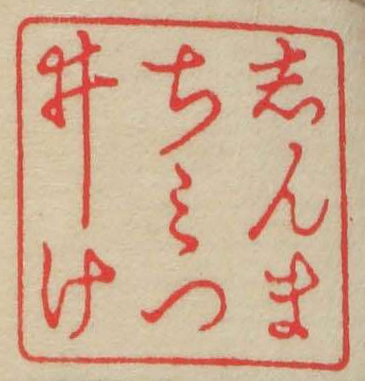 志んま
ちミつ
井け